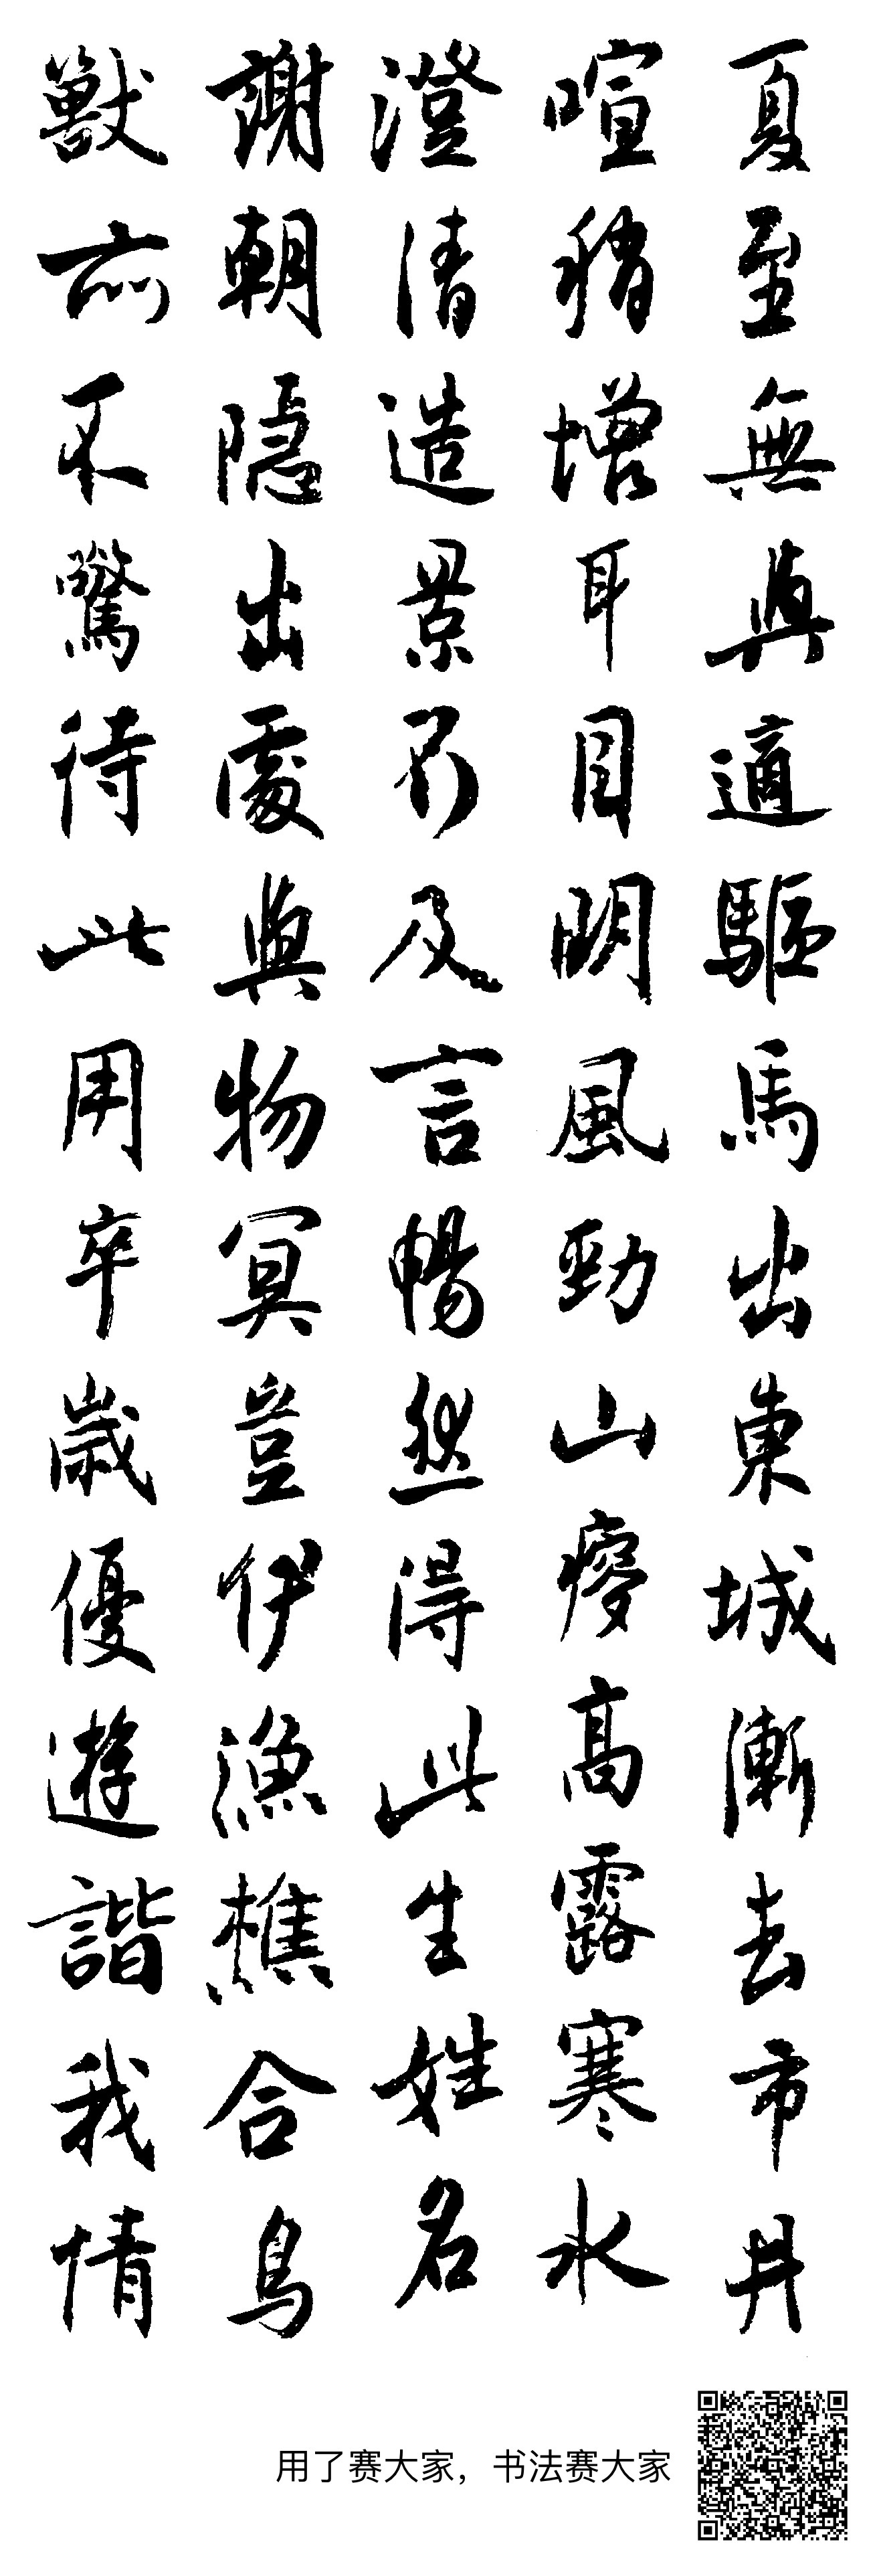 夏至無與適驅馬出東城漸去市井
喧稍增耳目明風勁山瘳高露寒水
澄清造景不及言暢然得此生姓名
謝朝隱出處與物冥豈伊漁樵合鳥
獸亦不驚待此用卒歲優遊諧我情
用了赛大家，书法赛大家